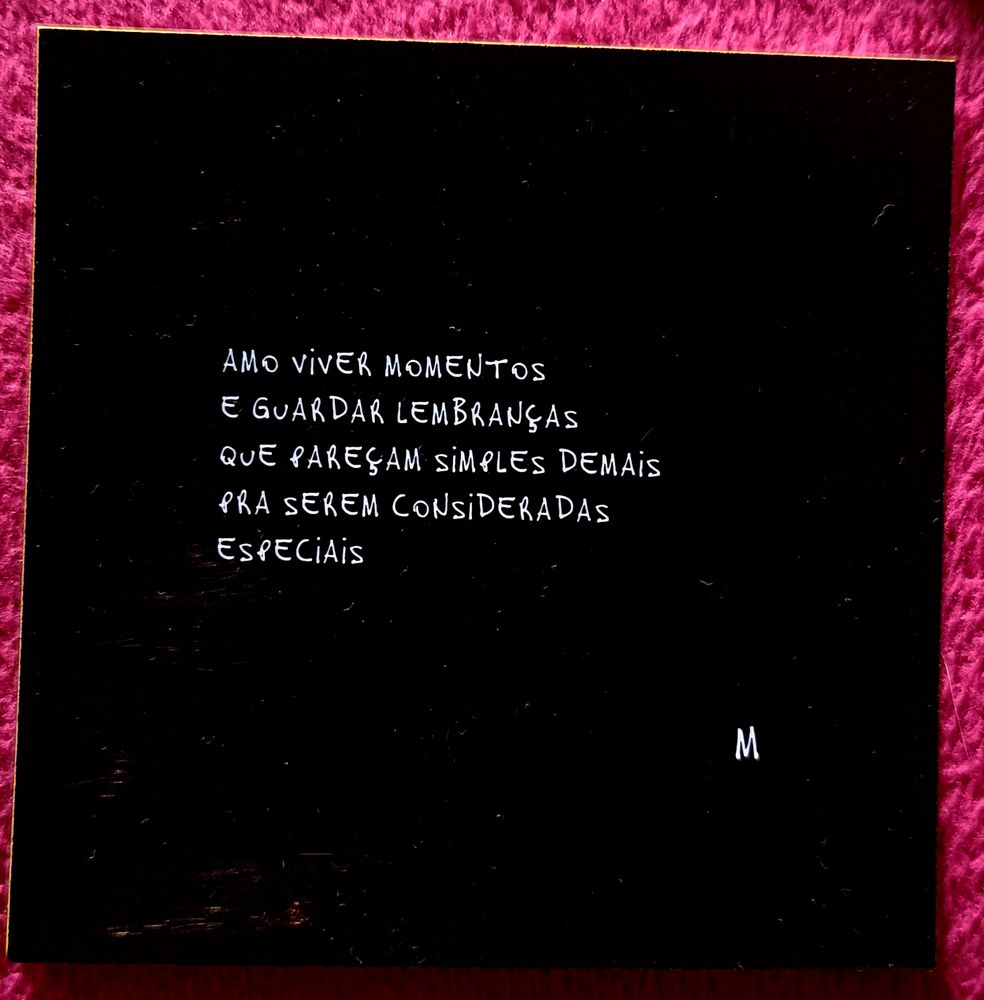 AMO ViVER MOMENTOS
E GUARDAR LEMBRANÇAS
QUE PAREÇAM SiMPLES DEMAiS
PRA SEREM CONSiDERADAS
ESPECiAiS
M